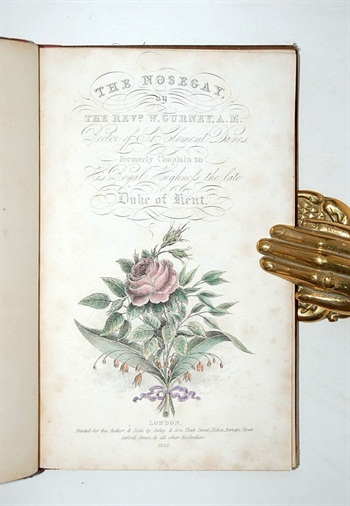 THE NOSEGAY,
BY
THE REVD. W. GURNEY, A.M.
Rector of St. Clement Danes,
formerly Chaplain to
His Royal Highness the late
Duke of Kent.
LONDON,
Printed for the Author, & Sold by
Street, & all other Booksellers.